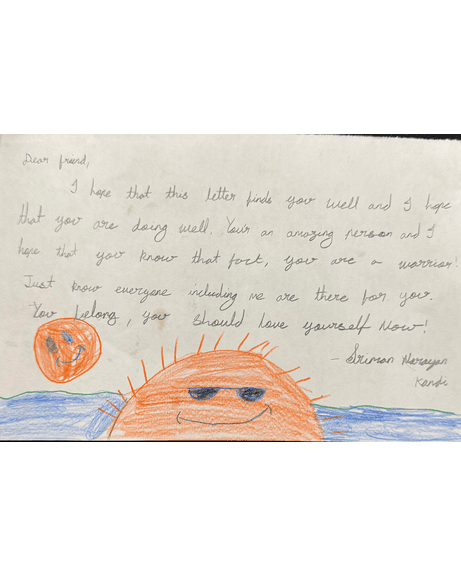 Dear friend,
I hope that this letter finds you well and I hope
that you are doing well. Your an amazing person and I
hope that you know that fact, you are a warrior!
Just know everyone including me are there for you.
You belong, you should love yourself Now!
- Sriman Narayan
Kandi